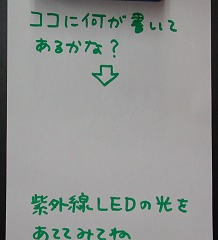 ココに何が書いて
あるかな？
紫外線LEDの光を
あててみてね